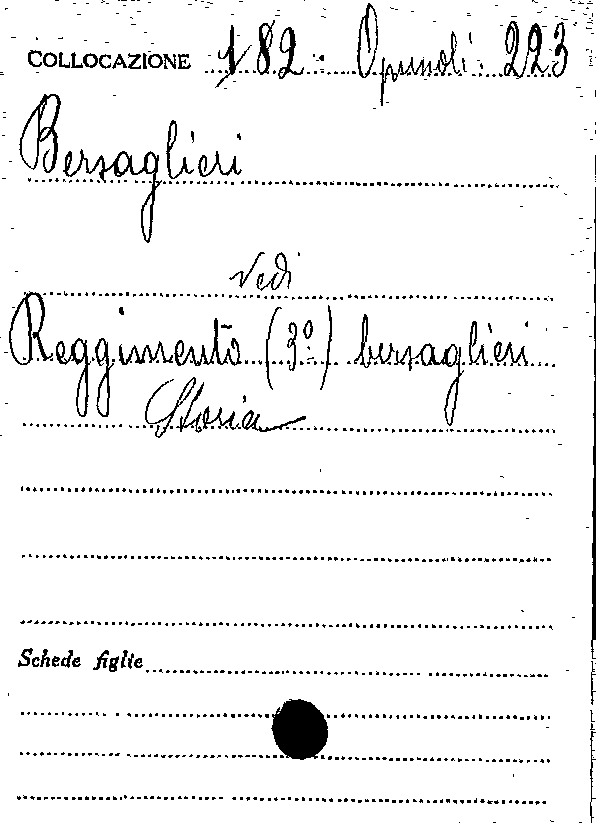 COLLOCAZIONE 182. Opuscoli. 223
Bersaglieri
Vedi
Reggimento (3º) bersaglieri
Storia
Schede figlie